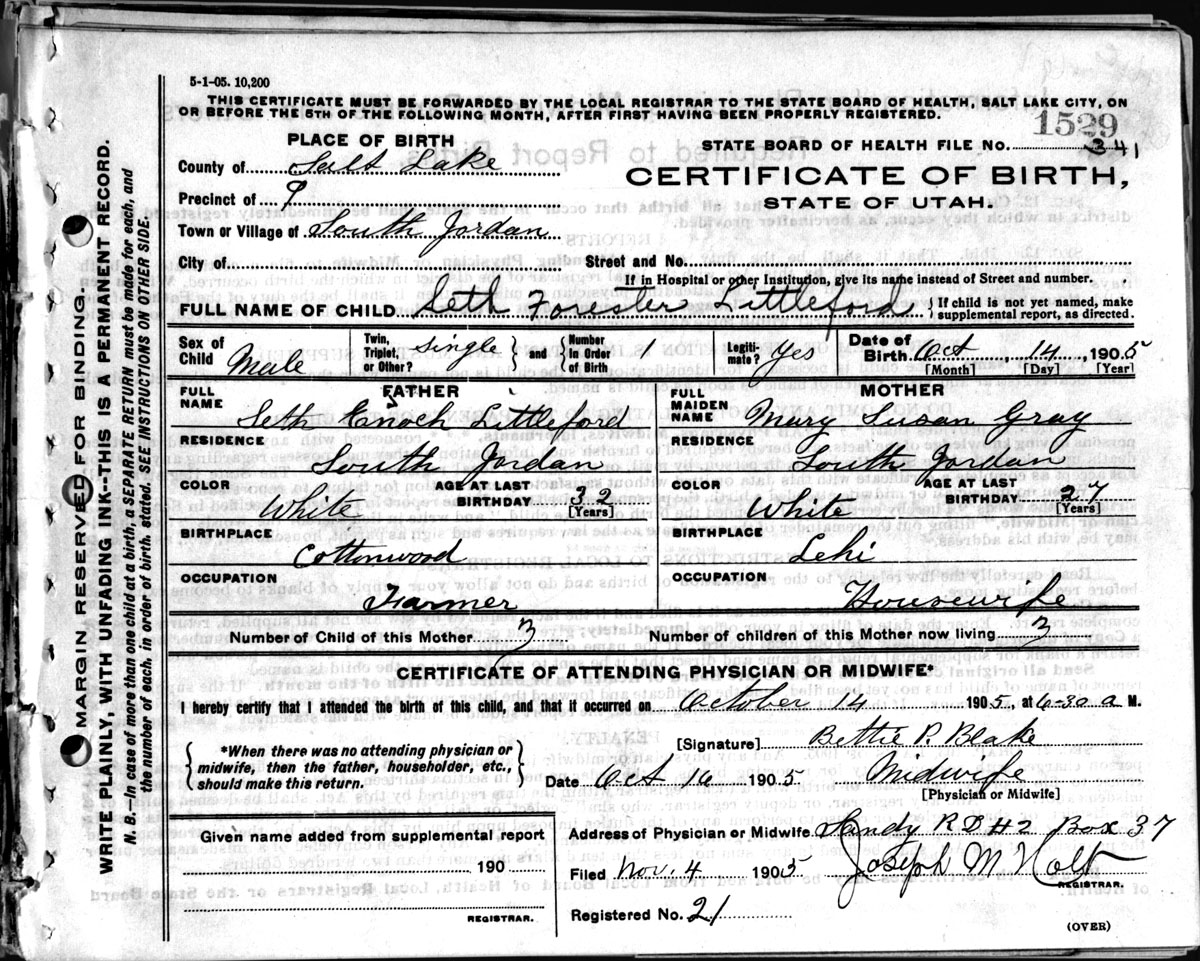 5-1-05. 10,200
THIS CERTIFICATE MUST BE FORWARDED BY THE LOCAL REGISTRAR TO THE STATE BOARD OF HEALTH, SALT LAKE CITY, ON
OR BEFORE THE 5TH OF THE FOLLOWING MONTH, AFTER FIRST HAVING BEEN PROPERLY REGISTERED.
1529
PLACE OF BIRTH
STATE BOARD OF HEALTH FILE NO. 341
County of Salt Lake
CERTIFICATE OF BIRTH,
Precinct of 9
STATE OF UTAH.
Town or Village of South Jordan
City of Street and No.
If in Hospital or other Institution, give its name instead of Street and number.
FULL NAME OF CHILD Seth Forester Littleford { If child is not yet named, make
supplemental report, as directed.
Sex of Child Male Twin, Triplet, or Other? Single } and { Number In Order of Birth 1 Legiti-mate? Yes Date of Birth Oct 14, 1905
[Month] [Day] [Year]
FATHER MOTHER
FULL NAME Seth Enoch Littleford FULL MAIDEN NAME Mary Susan Gray
RESIDENCE South Jordan RESIDENCE South Jordan
COLOR White AGE AT LAST BIRTHDAY 32 [Years] COLOR White AGE AT LAST BIRTHDAY 27 [Years]
BIRTHPLACE Cottonwood BIRTHPLACE Lehi
OCCUPATION Farmer OCCUPATION Housewife
Number of Child of this Mother 3 Number of children of this Mother now living 3
CERTIFICATE OF ATTENDING PHYSICIAN OR MIDWIFE*
I hereby certify that I attended the birth of this child, and that it occurred on October 14 1905, at 6-30 a M.
{ *When there was no attending physician or
midwife, then the father, householder, etc.,
should make this return. }
[Signature] Bettie P. Blake
Date Oct 16 1905 Midwife
[Physician or Midwife]
Given name added from supplemental report
190
REGISTRAR.
Address of Physician or Midwife Sandy R D #2 Box 37
Filed Nov. 4 1905 Joseph M Holt
REGISTRAR.
Registered No. 21
(OVER)
MARGIN RESERVED FOR BINDING.
WRITE PLAINLY, WITH UNFADING INK--THIS IS A PERMANENT RECORD.
N. B.—In case of more than one child at a birth, a SEPARATE RETURN must be made for each, and
the number of each, in order of birth, stated. SEE INSTRUCTIONS ON OTHER SIDE.